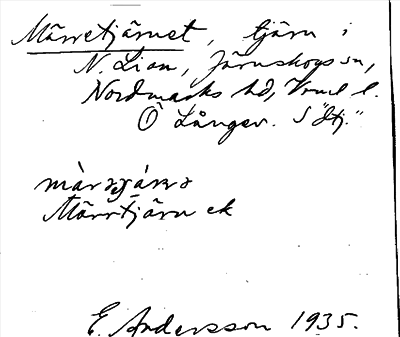 Märretjärnet, tjärn i
N. Lian, Järnskogs sn,
Nordmarks hd, Vrml l.
Ö Långev. S "dtj."
Märrtjärn ek
E. Andersson 1935.